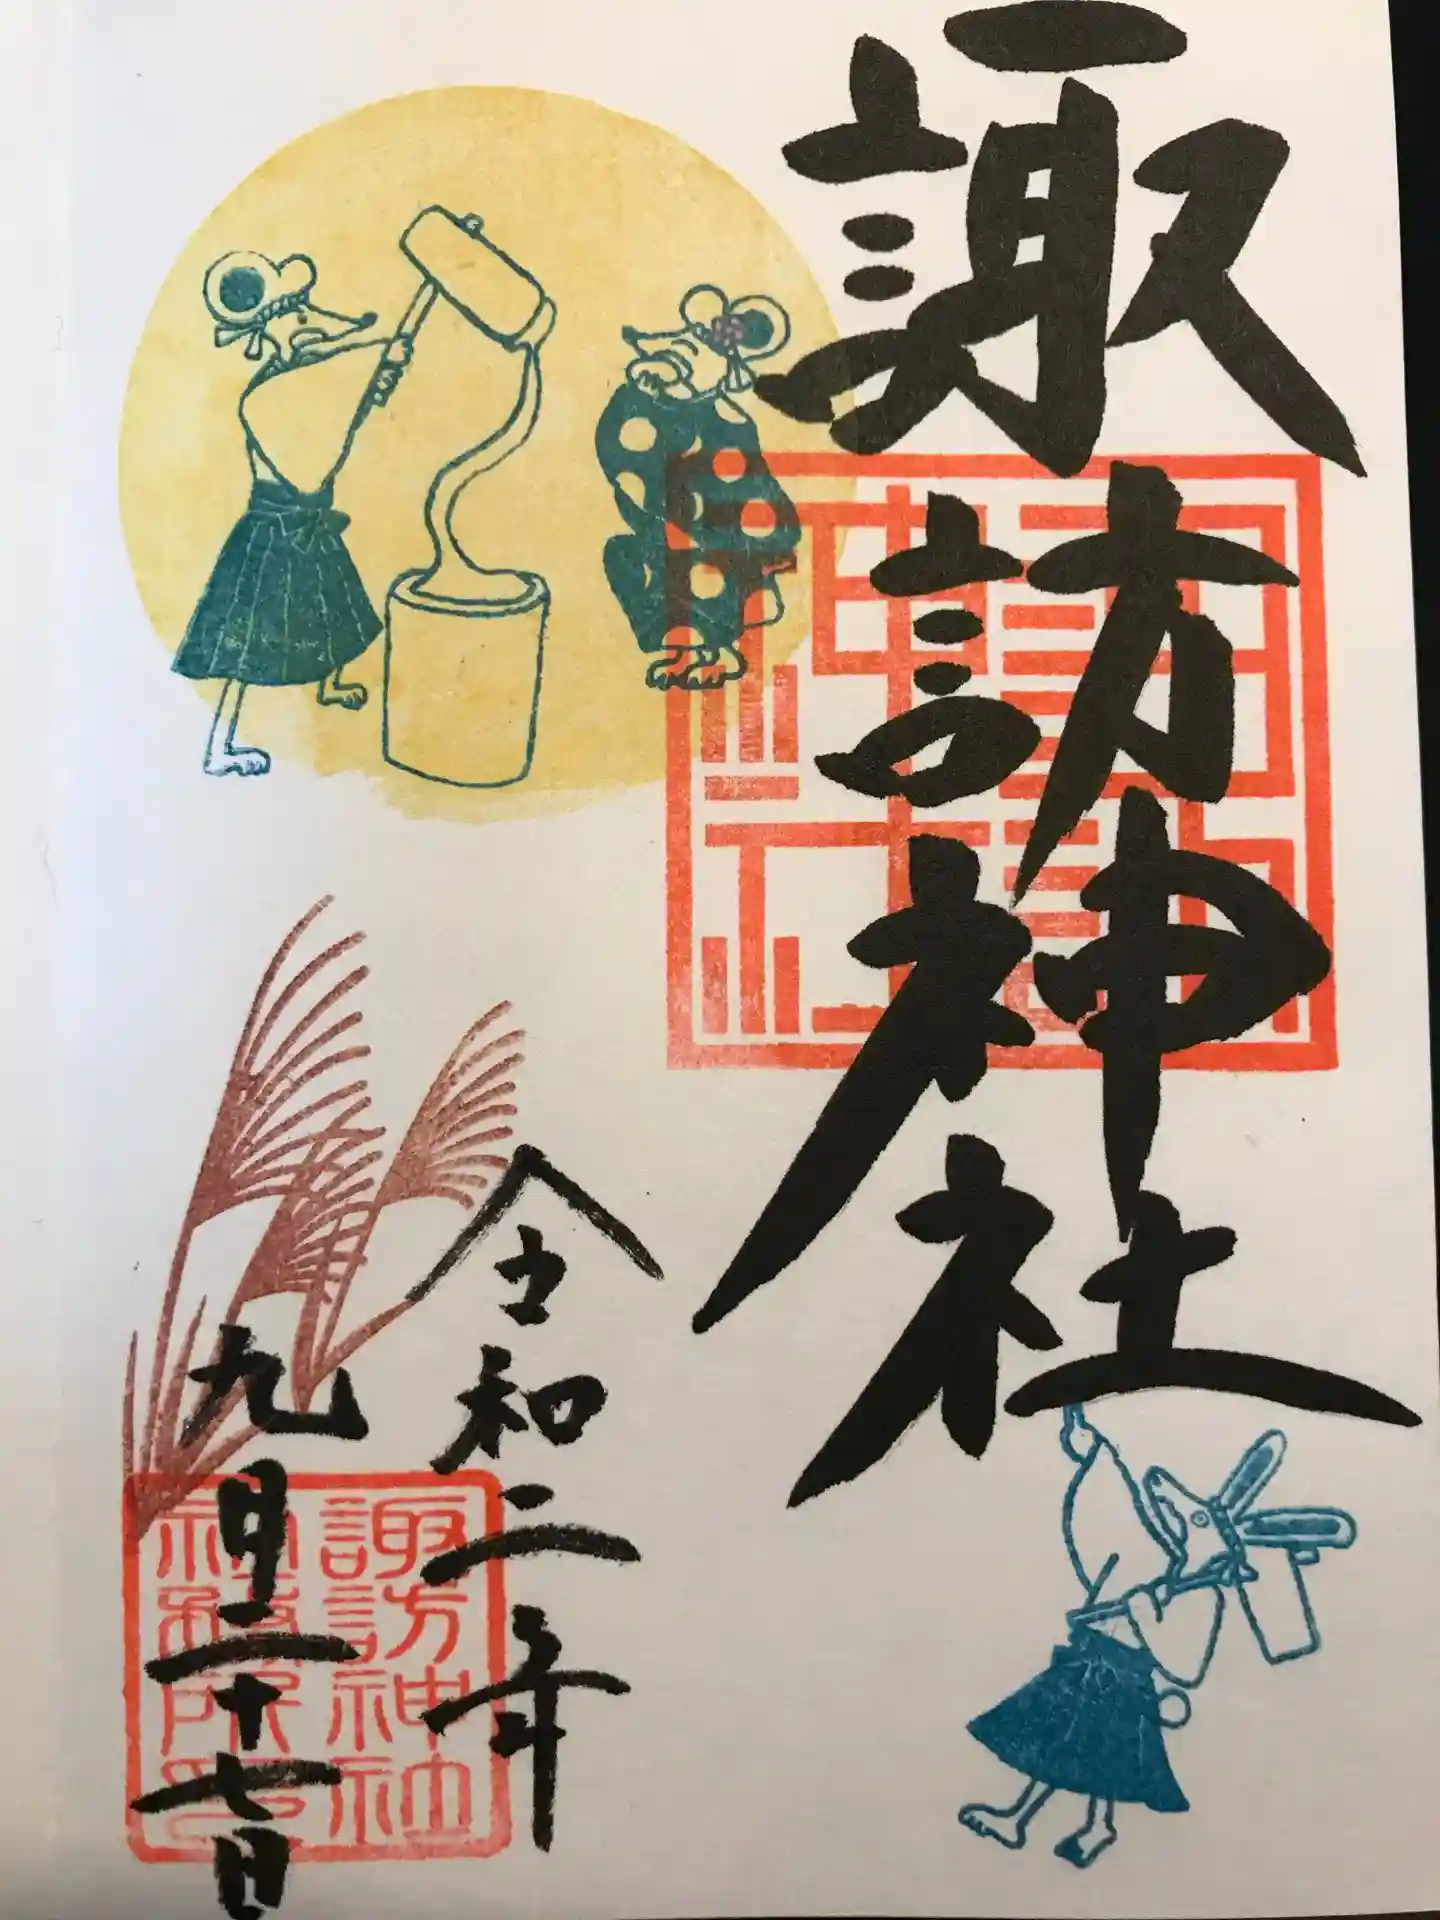 諏訪神社
諏訪神社
令和二年
九月二十七日
諏訪神社
社務所印